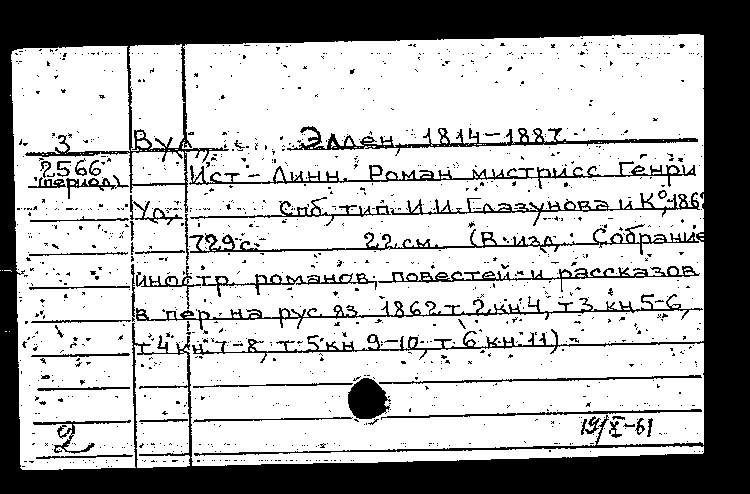 3 Вуд, Эллен, 1814-1887.
2566 Ист-Линн. Роман мистрисс Генри
(период)
Уд, Спб, тип. И.И. Глазунова и К°, 186
729 с. 22 см. (В изд.: Собрание
иностр. романов, повестей и рассказов
в пер. на рус. яз. 1862. т. 2, кн 4, т 3. кн. 5-6,
т. 4 кн. 7-8, т. 5 кн 9-10, т. 6 кн. 11)
2 19/X-61